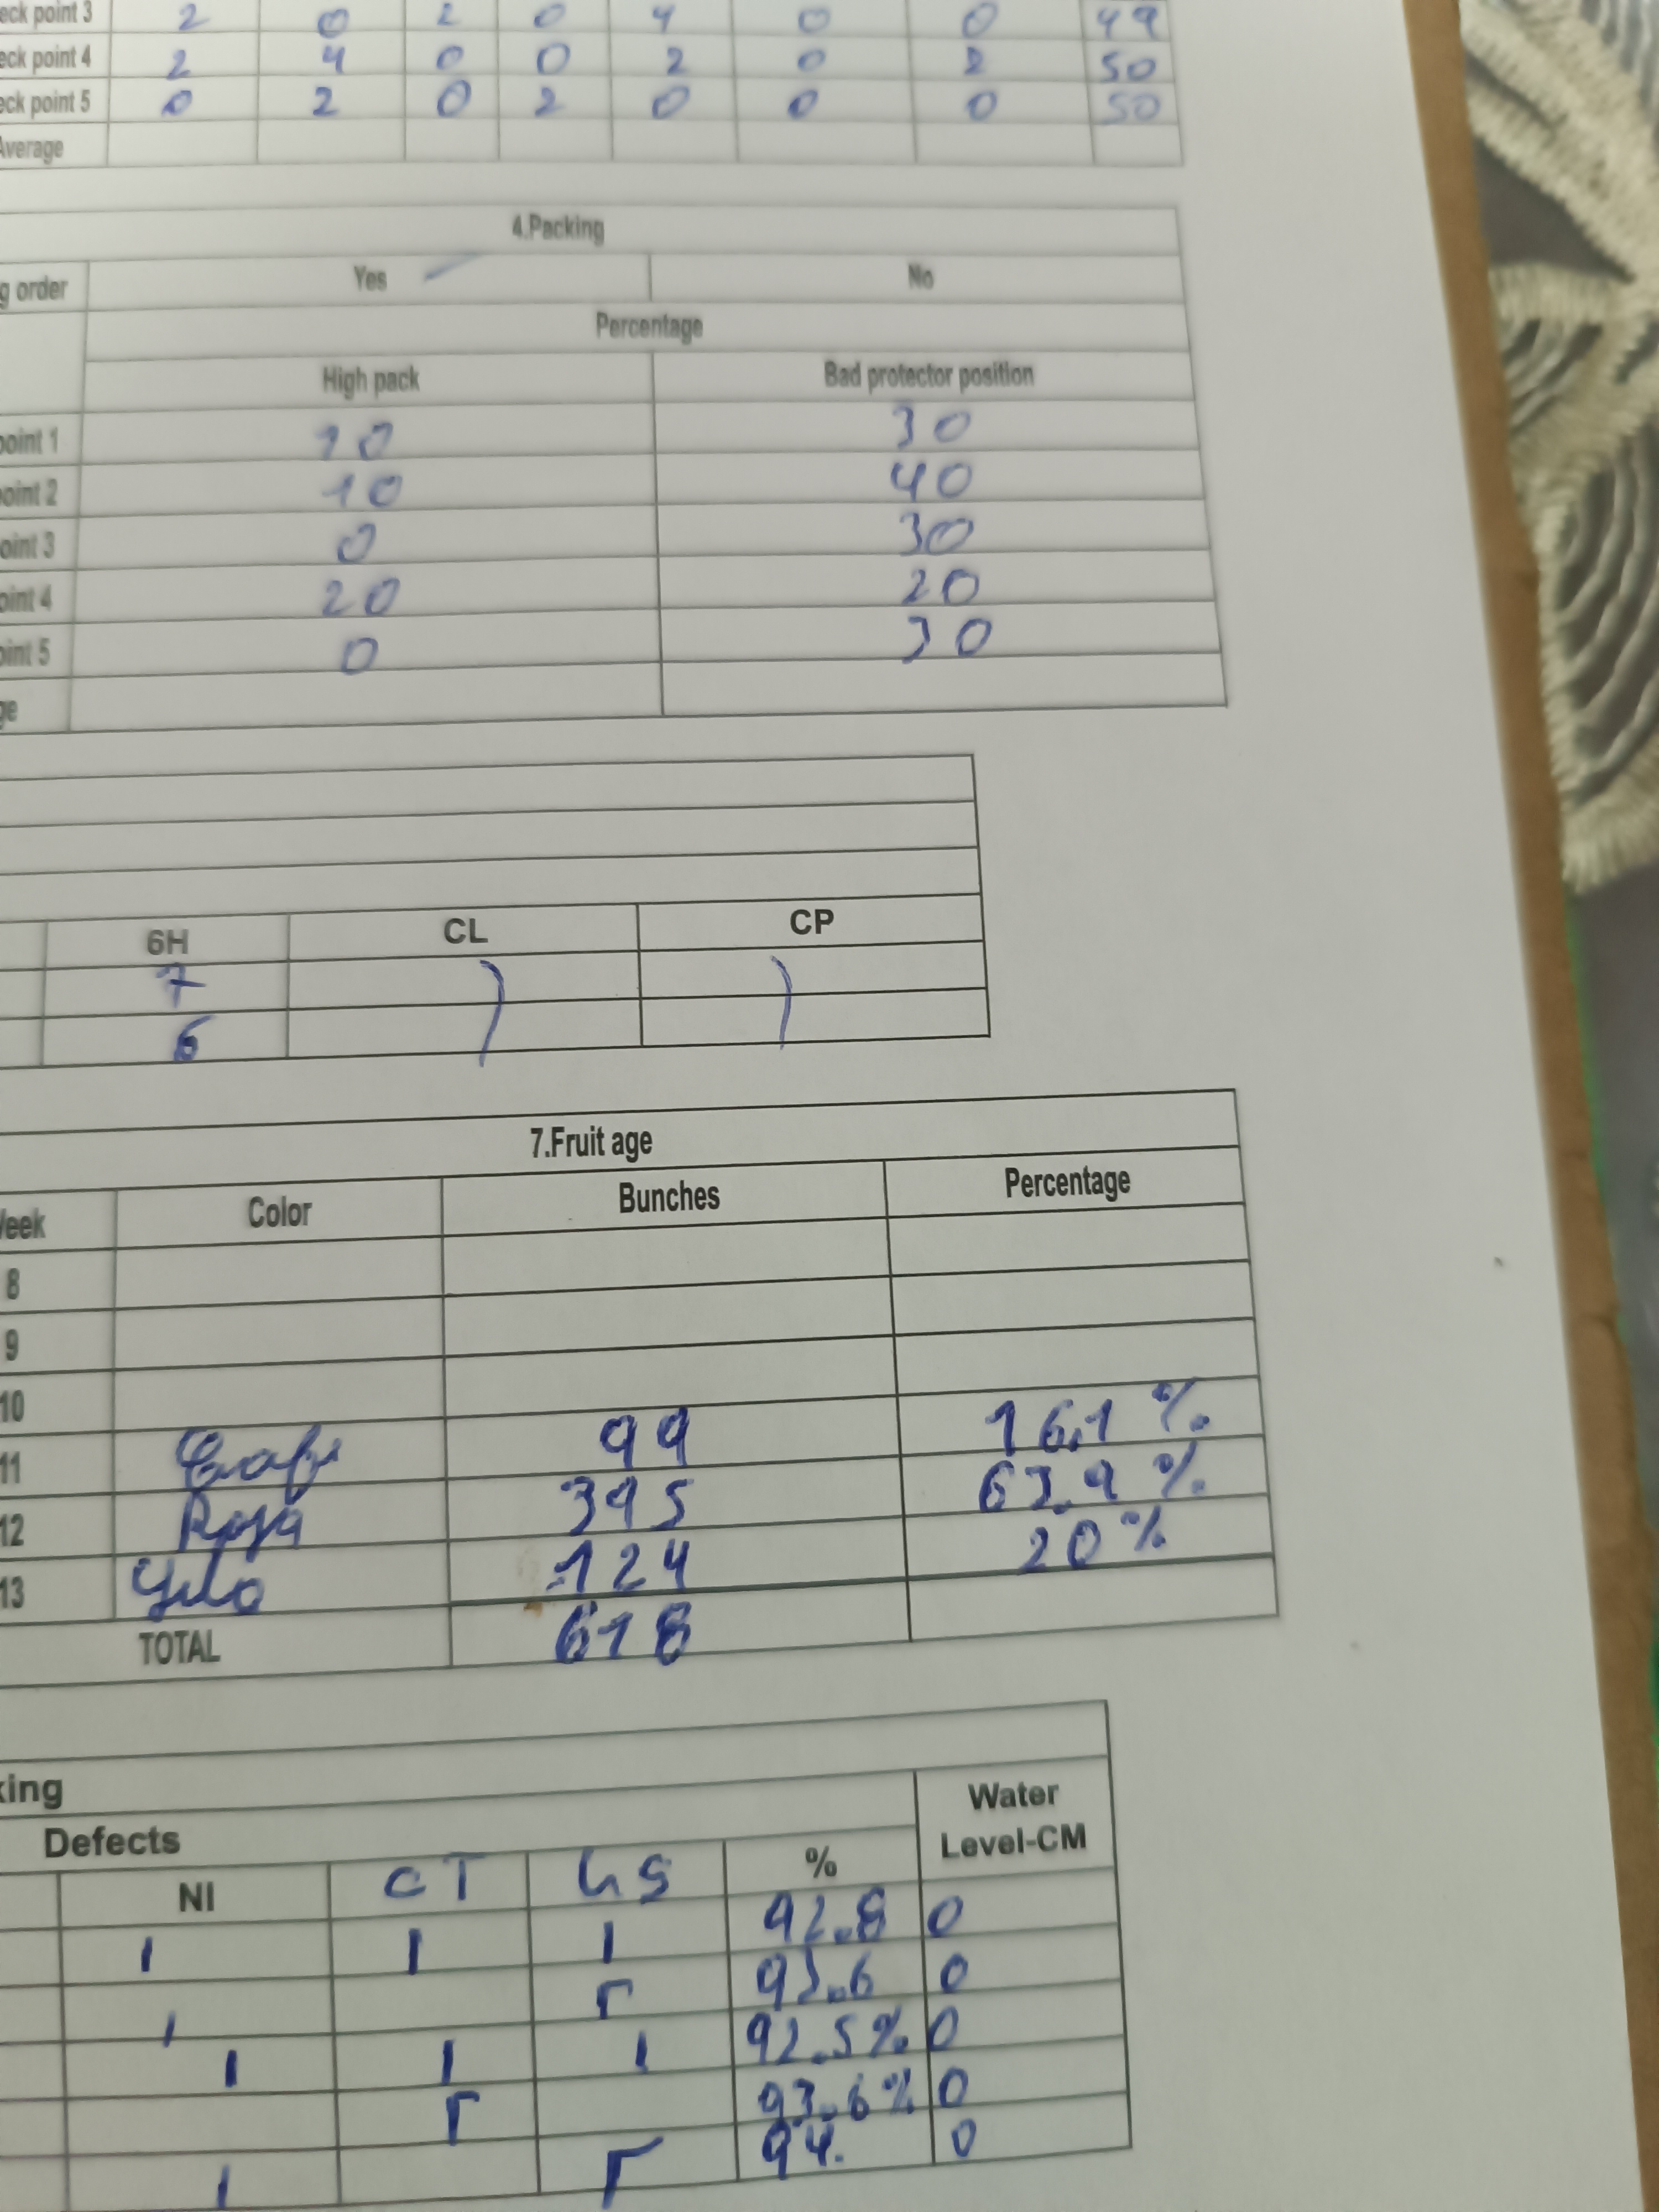 eck point 3 2 0 2 0 4 0 0 49
eck point 4 2 4 0 0 2 0 2 50
eck point 5 0 2 0 2 0 0 0 50
Average
4.Packing
g order Yes No
Percentage
High pack Bad protector position
point 1 10 30
point 2 10 40
oint 3 0 30
oint 4 20 20
oint 5 0 30
ge
6H CL CP
7
6
7.Fruit age
Week Color Bunches Percentage
8
9
10
11 Cafe 99 16.1 %
12 Roja 395 63.9 %
13 124 20 %
TOTAL 618
king
Defects
Water Level-CM
NI CT GS %
1 1 1 92.8 0
1 Γ 93.6 0
1 1 1 92.5% 0
Γ 93.6% 0
1 Γ 94. 0